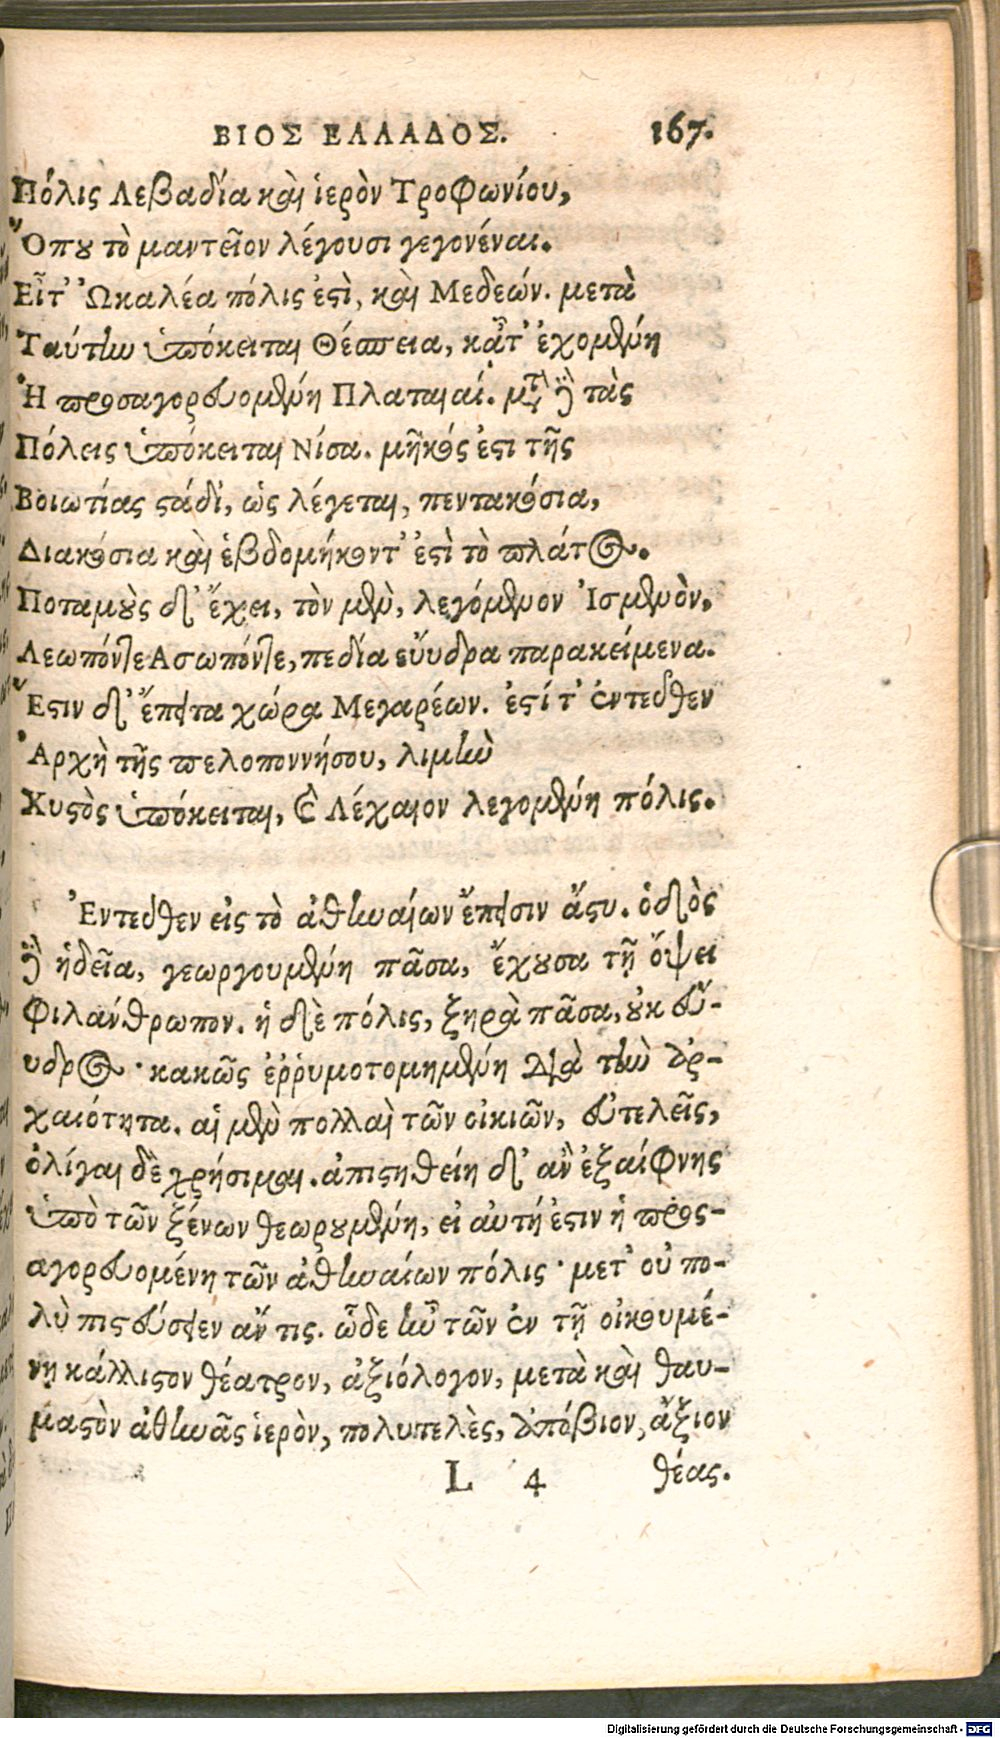 ΒΙΟΣ ΕΛΛΑΔΟΣ. 167.
Πόλις Λεβαδία καὶ ἱερὸν Τροφωνίου,
Ὅπου τὸ μαντεῖον λέγουσι γεγονέναι.
Εἶτ' Ὠκαλέα πόλις ἐστὶ, καὶ Μεδεών. μετὰ
Ταύτην ὑπόκειται Θέσπεια, κᾆτ' ἐχομένη
Ἡ προσαγορευομένη Πλαταιαί. μετὰ δὲ τὰς
Πόλεις ὑπόκειται Νίσα. μῆκός ἐστι τῆς
Βοιωτίας στάδι', ὡς λέγεται, πεντακόσια,
Διακόσια καὶ ἑβδομήκοντ' ἐστὶ τὸ πλάτος.
Ποταμοὺς δ' ἔχει, τὸν μὲν, λεγόμενον Ἰσμενὸν,
Λεωπόντε Ασωπόντε, πεδία εὔυδρα παρακείμενα.
Ἔστιν δ' ἔπειτα χώρα Μεγαρέων. ἐστί τ' ἐντεῦθεν
Ἀρχὴ τῆς πελοποννήσου, λιμὴν
Χυστὸς ὑπόκειται, καὶ Λέχαιον λεγομένη πόλις.
Ἐντεῦθεν εἰς τὸ ἀθηναίων ἔπεισιν ἄστυ. ὁδὸς
δὲ ἡδεῖα, γεωργουμένη πᾶσα, ἔχουσα τῇ ὄψει
φιλάνθρωπον. ἡ δὲ πόλις, ξηρὰ πᾶσα, οὐκ εὔ-
υδρος · κακῶς ἐῤῥυμοτομημένη διὰ τὴν ἀρ-
χαιότητα. αἱ μὲν πολλαὶ τῶν οἰκιῶν, εὐτελεῖς,
ὀλίγαι δὲ χρήσιμαι. ἀπιστηθείη δ' ἂν ἐξαίφνης
ὑπὸ τῶν ξένων θεωρουμένη, εἰ αὐτή ἐστιν ἡ προς-
αγορευομένη τῶν ἀθηναίων πόλις · μετ' οὐ πο-
λὺ πιστεύσειεν ἄν τις. ὧδε ἦν τῶν ἐν τῇ οἰκουμέ-
νῃ κάλλιστον θέατρον, ἀξιόλογον, μετὰ καὶ θαυ-
μαστὸν ἀθηνᾶς ἱερὸν, πολυτελὲς, ἀπόβιον, ἄξιον
L 4 θέας.
Digitalisierung gefördert durch die Deutsche Forschungsgemeinschaft - DFG